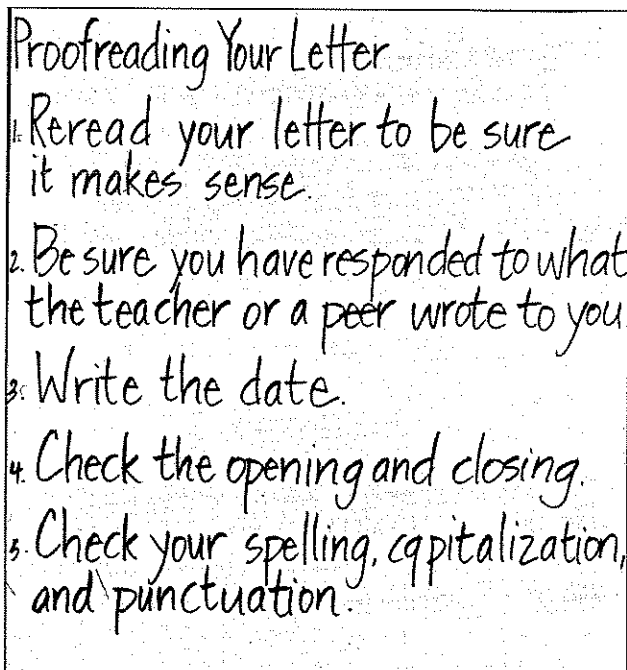 Proofreading Your Letter
1. Reread your letter to be sure
it makes sense.
2. Be sure you have responded to what
the teacher or a peer wrote to you
3. Write the date.
4. Check the opening and closing.
5. Check your spelling, capitalization,
and punctuation.